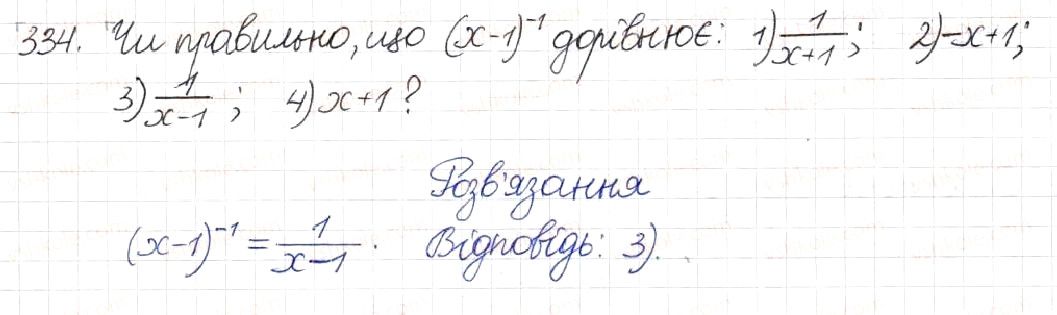 334. Чи правильно, що (x-1)⁻¹ дорівнює: 1) 1/(x+1); 2) -x+1;
3) 1/(x-1); 4) x+1?
Розв'язання
(x-1)⁻¹ = 1/(x-1). Відповідь: 3).